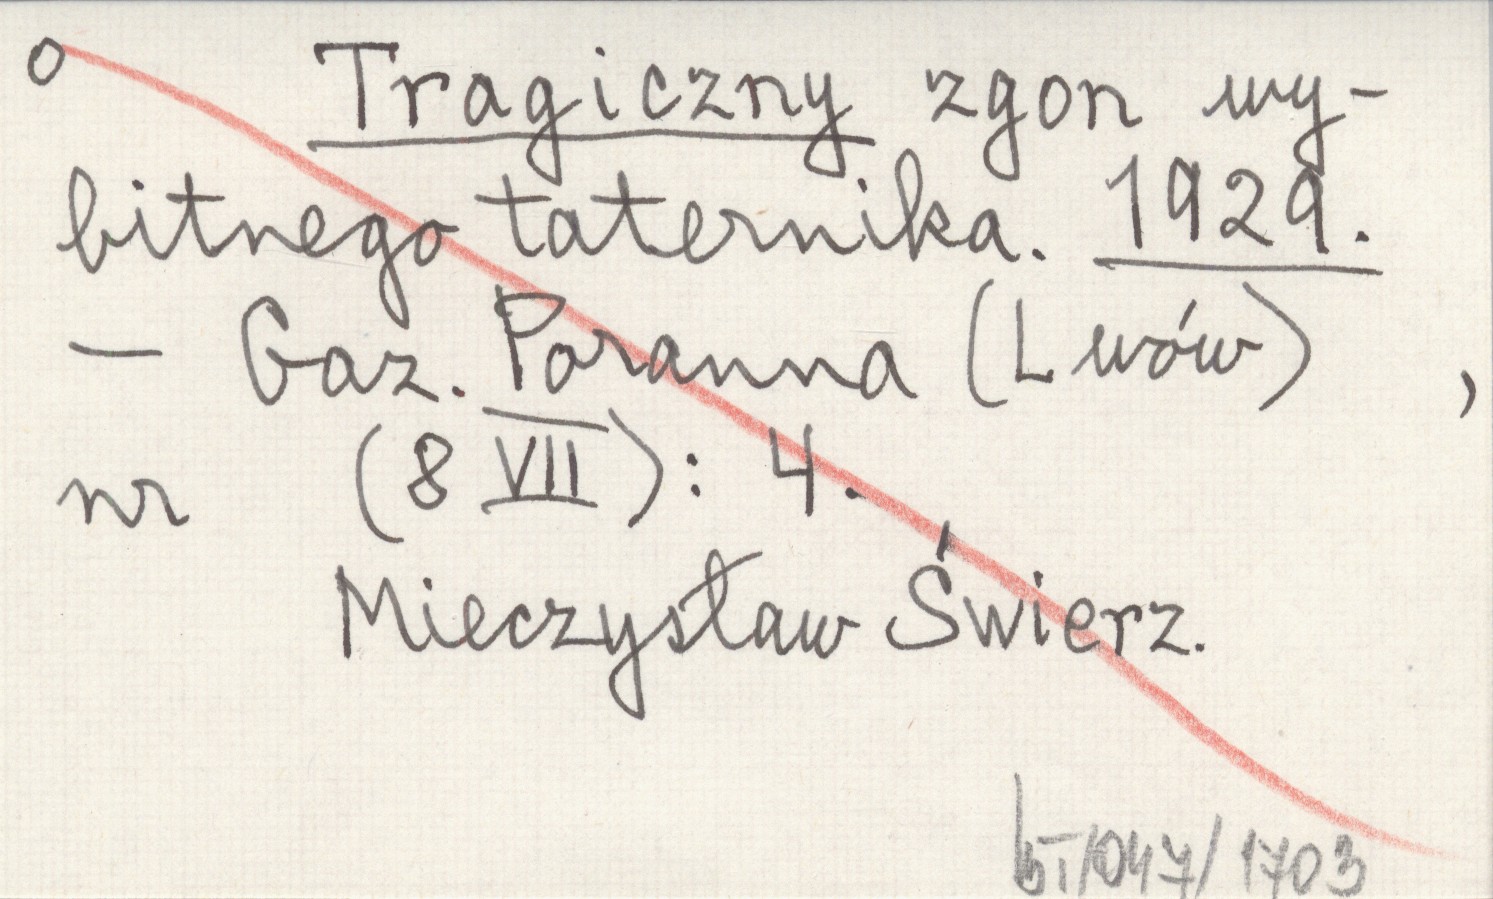 o Tragiczny zgon wy-
bitnego taternika. 1929.
— Gaz. Poranna (Lwów) ,
nr (8 VII): 4.
Mieczysław Świerz.
/047/1703